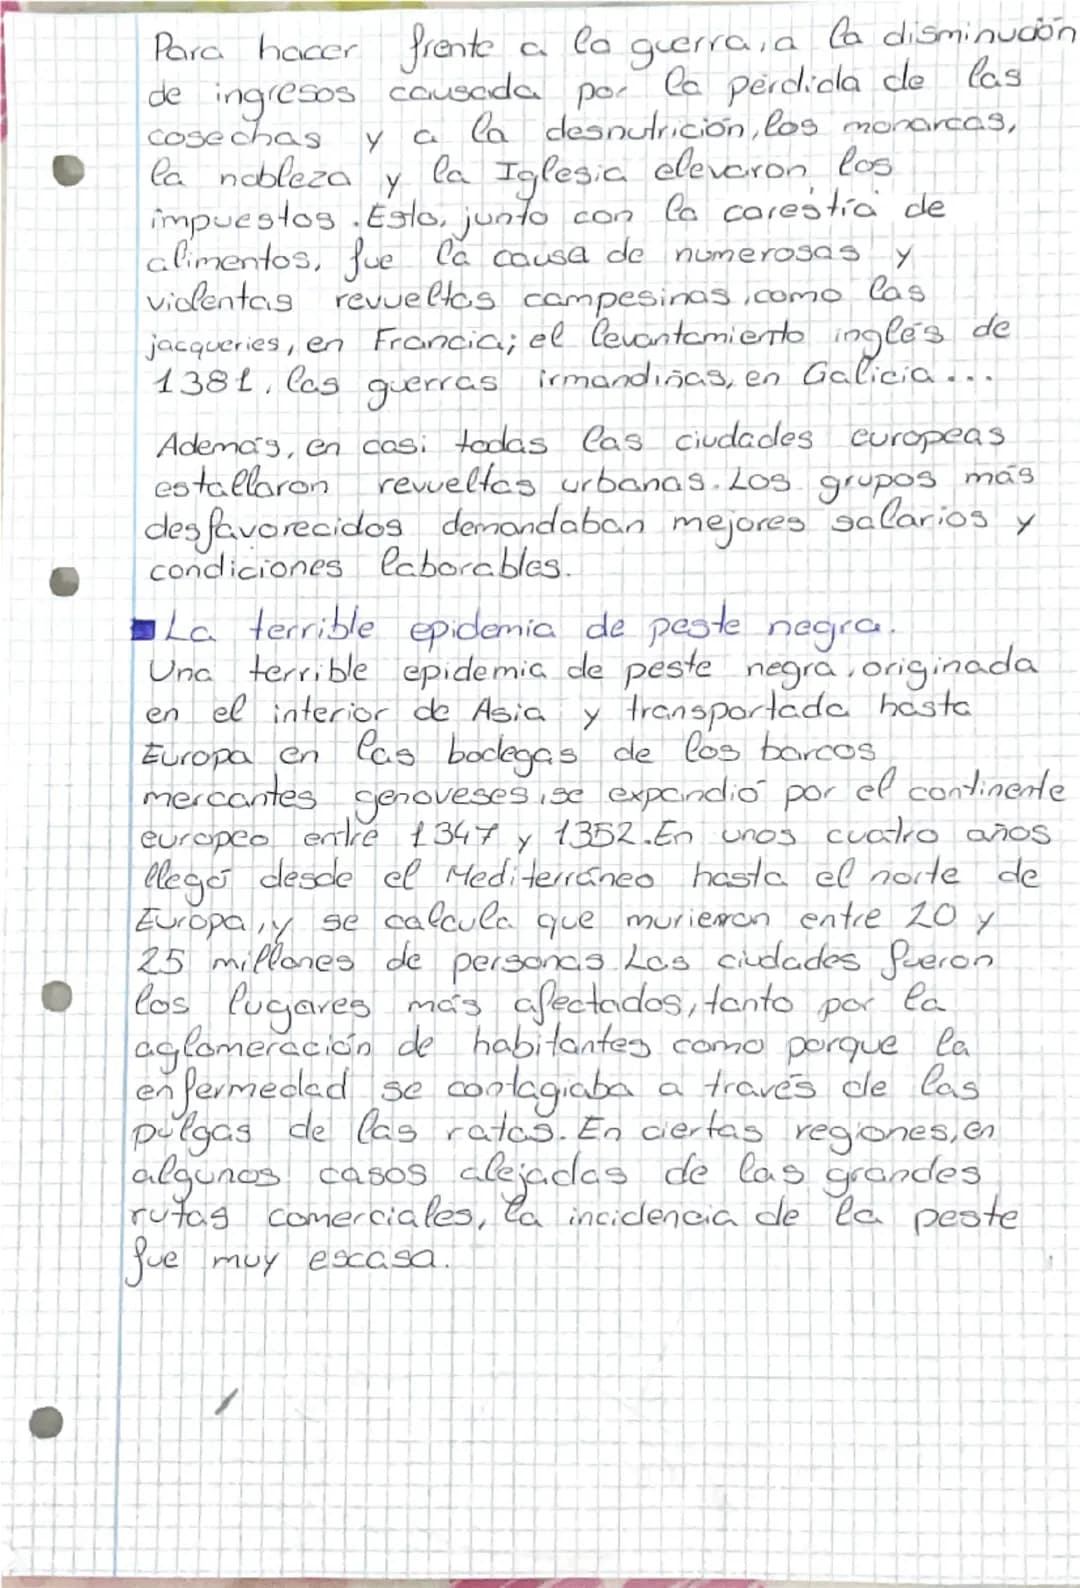 Para hacer frente a la guerra, a la disminución
de ingresos causada por la pérdida de las
cosechas y a la desnutrición, los monarcas,
la nobleza y la Iglesia elevaron los
impuestos. Esto, junto con la carestía de
alimentos, fue la causa de numerosas y
violentas revueltas campesinas, como las
jacqueries, en Francia; el levantamiento inglés de
1381, las guerras irmandiñas, en Galicia...
Además, en casi todas las ciudades europeas
estallaron revueltas urbanas. Los grupos más
desfavorecidos demandaban mejores salarios y
condiciones laborables.
La terrible epidemia de peste negra.
Una terrible epidemia de peste negra, originada
en el interior de Asia y transportada hasta
Europa en las bodegas de los barcos
mercantes genoveses, se expandió por el continente
europeo entre 1347 y 1352. En unos cuatro años
llegó desde el Mediterráneo hasta el norte de
Europa, y se calcula que murieron entre 20 y
25 millones de personas. Las ciudades fueron
los lugares más afectados, tanto por la
aglomeración de habitantes como porque la
enfermedad se contagiaba a través de las
pulgas de las ratas. En ciertas regiones, en
algunos casos alejadas de las grandes
rutas comerciales, la incidencia de la peste
fue muy escasa.